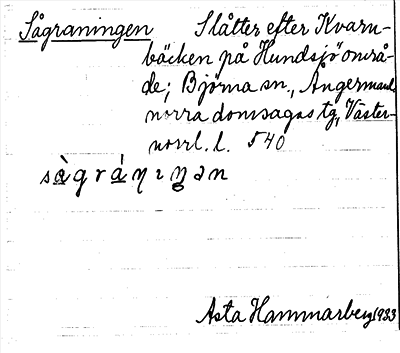 Sågraningen Slåtter efter Kvarn-
bäcken på Hundsjöområ-
de; Björna sn., Ångermanl.
norra domsagas tg, Väster-
norrl. l. 540
sàgránıŋən
Asta Hammarberg 1933